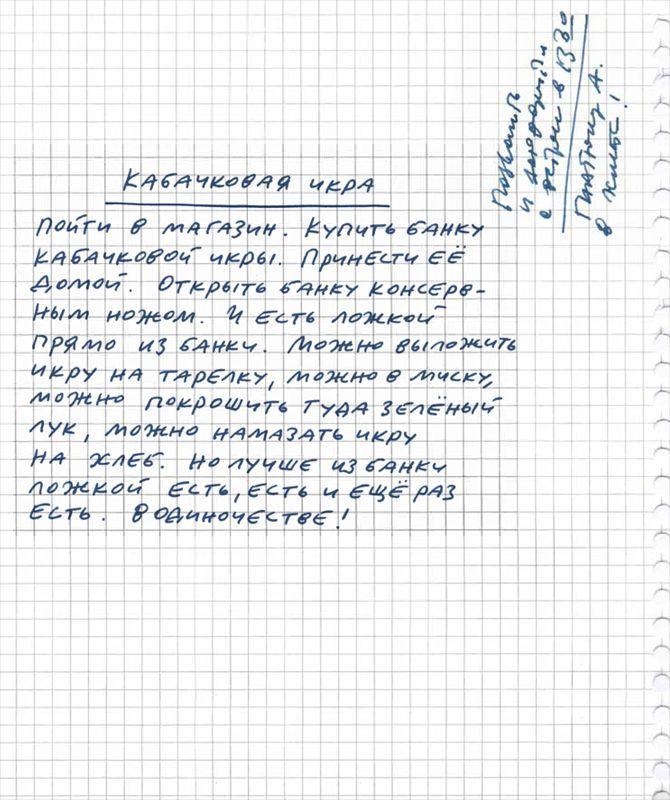 КАБАЧКОВАЯ ИКРА
ПОЙТИ В МАГАЗИН. КУПИТЬ БАНКУ
КАБАЧКОВОЙ ИКРЫ. ПРИНЕСТИ ЕЁ
ДОМОЙ. ОТКРЫТЬ БАНКУ КОНСЕРВ-
НЫМ НОЖОМ. И ЕСТЬ ЛОЖКОЙ
ПРЯМО ИЗ БАНКИ. МОЖНО ВЫЛОЖИТЬ
ИКРУ НА ТАРЕЛКУ, МОЖНО В МИСКУ,
МОЖНО ПОКРОШИТЬ ТУДА ЗЕЛЁНЫЙ
ЛУК, МОЖНО НАМАЗАТЬ ИКРУ
НА ХЛЕБ. НО ЛУЧШЕ ИЗ БАНКИ
ЛОЖКОЙ ЕСТЬ, ЕСТЬ И ЕЩЁ РАЗ
ЕСТЬ. В ОДИНОЧЕСТВЕ!
Позвонить
и
о встрече в 13 30
А.
в